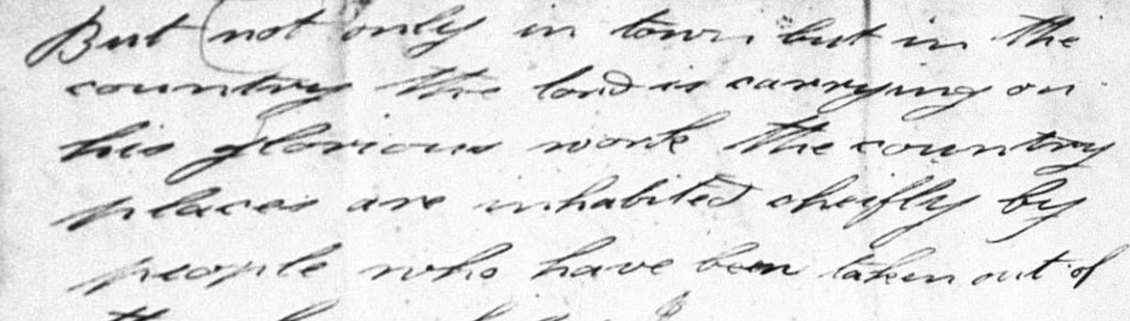 But not only in town but in the
country the lord is carrying on
his glorious work the country
places are inhabited cheifly by
people who have been taken out of